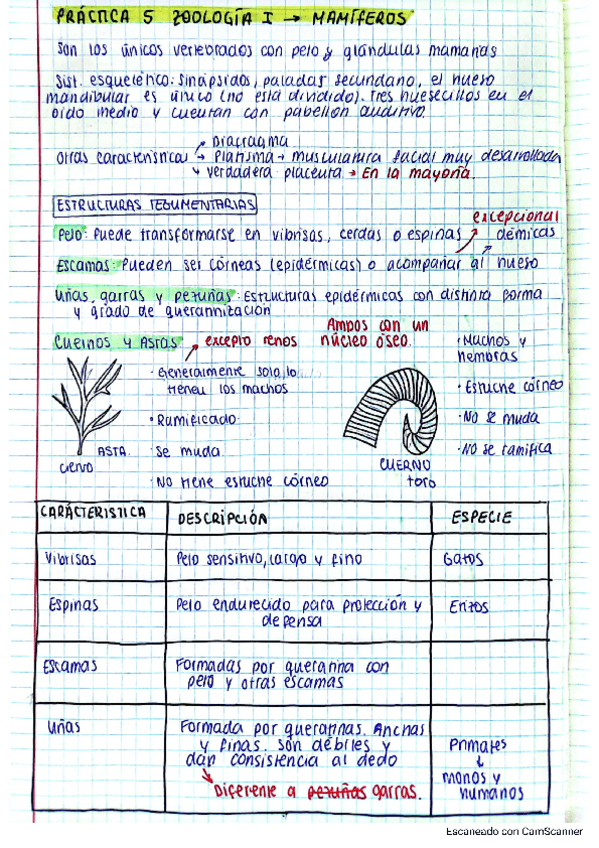 PRÁCTICA 5 ZOOLOGÍA I → MAMÍFEROS
Son los únicos vertebrados con pelo y glándulas mamarias
Sist. esquelético: Sinápsidos, paladar secundario, el hueso
mandibular es único (no está dividido). Tres huesecillos en el
oido medio y cuentan con pabellón auditivo.
Diafragma
Otras características → Platisma → musculatura facial muy desarrollada
verdadera placenta → En la mayoría.
ESTRUCTURAS TEGUMENTARIAS
excepcional
Pelo: Puede transformarse en vibrisas, cerdas o espinas
démicas
Escamas: Pueden ser córneas (epidérmicas) o acompañar al hueso
Uñas, garras y pezuñas: Estructuras epidérmicas con distinta forma
y grado de queratinización
Cuernos y Astas
excepto renos
Ambos con un
núcleo óseo.
· Generalmente solo lo
tienen los machos
· Ramificado
· Se muda
· No tiene estuche córneo
ASTA
ciervo
CUERNO
toro
· Machos y
hembras
· Estuche córneo
· No se muda
· No se ramifica
CARÁCTERISTICA DESCRIPCIÓN ESPECIE
Vibrisas Pelo sensitivo, largo y fino Gatos
Espinas Pelo endurecido para protección y Erizos
defensa
Escamas Formadas por queratina con
pelo y otras escamas
Uñas Formada por queratinas. Anchas
y finas. Son débiles y
dan consistencia al dedo
Primates
↓
monos y
humanos
Diferente a pezuñas garras.
Escaneado con CamScanner